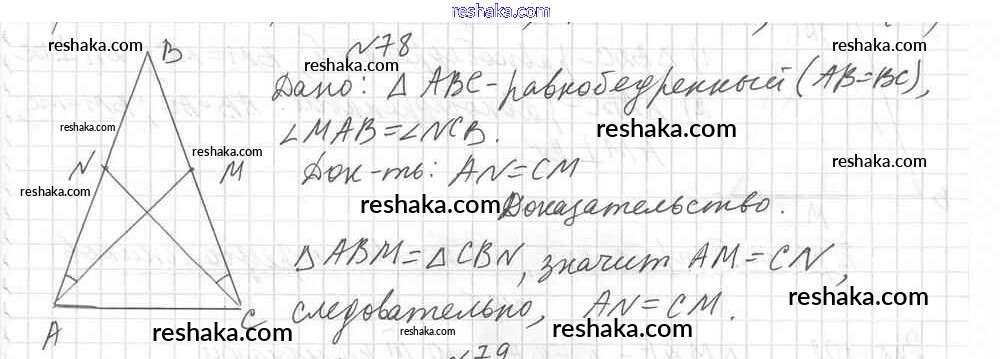 reshaka.com
№78
reshaka.com
reshaka.com
reshaka.com
reshaka.com
B
Дано: △ ABC - равнобедренный (AB=BC),
reshaka.com
reshaka.com
∠MAB=∠NCB.
reshaka.com
reshaka.com
N
M
Док-ть: AN=CM
reshaka.com
reshaka.com
Доказательство.
△ ABM=△ CBN, значит AM=CN,
reshaka.com
A
C
следовательно, AN=CM.
reshaka.com
reshaka.com
reshaka.com
№79